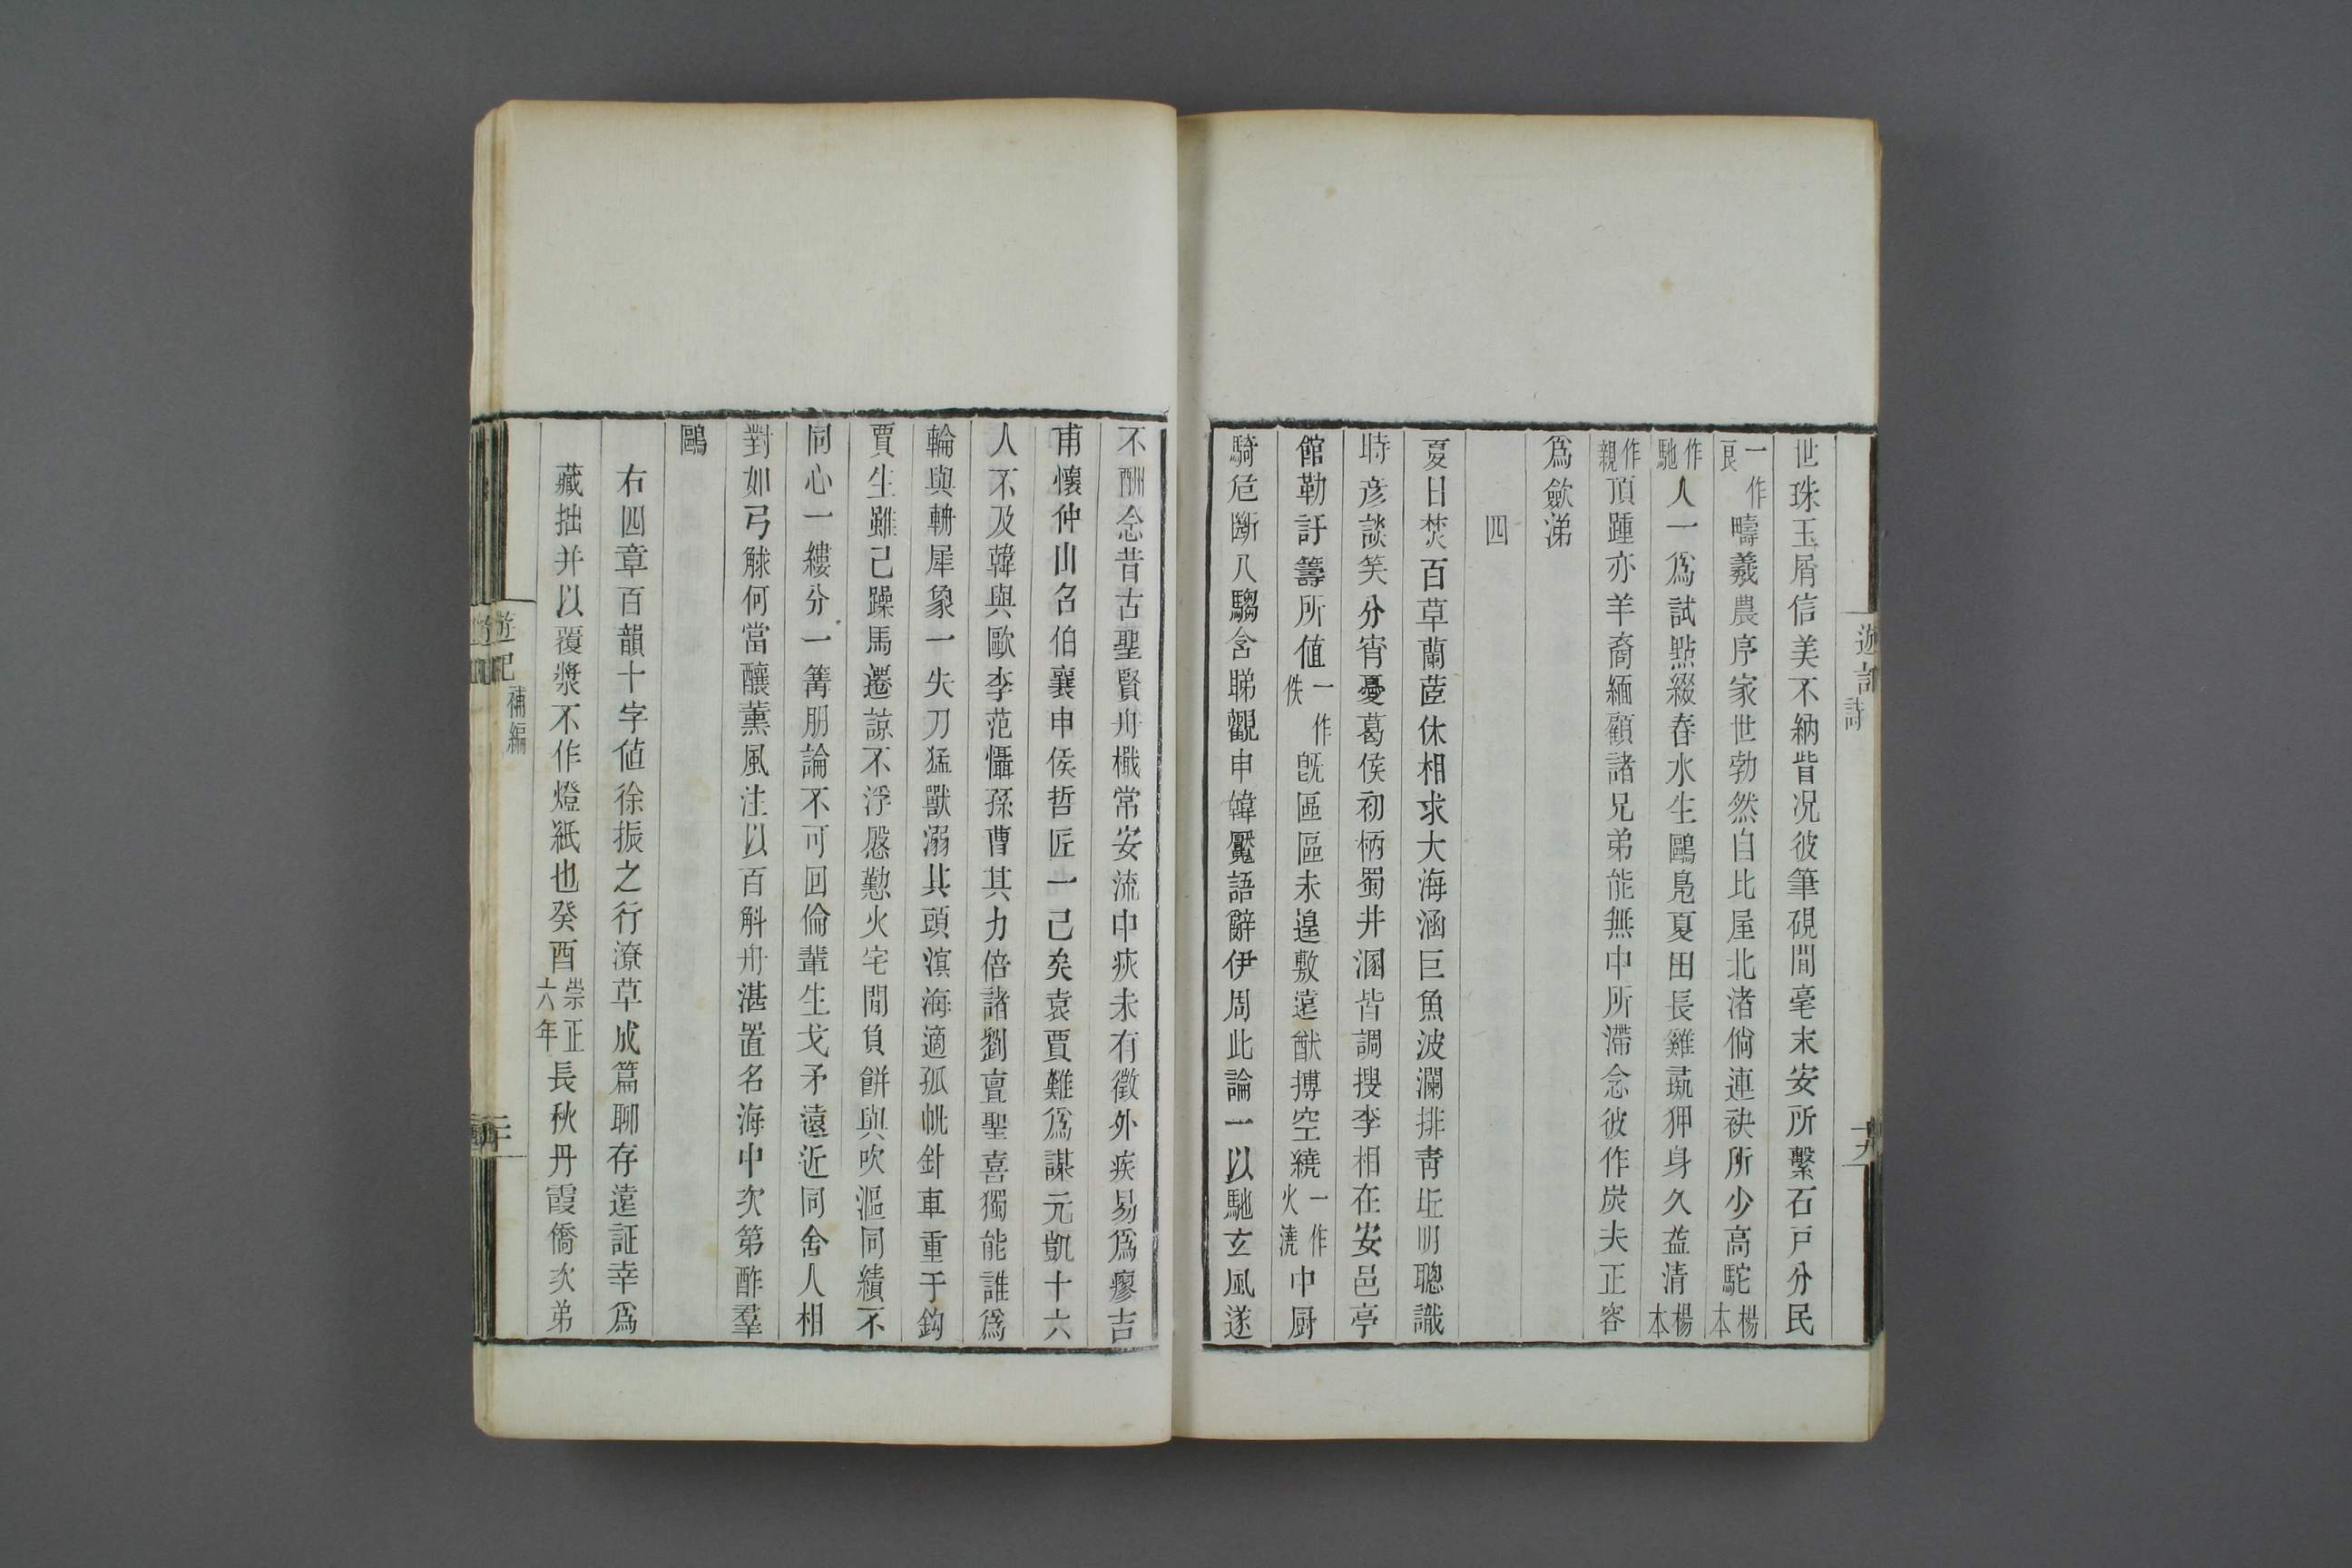 世珠玉屑信美不納眥况彼筆硯間毫末安所繫石戸分民
一作良疇羲農序家世勃然自比屋北渚倘連袂所少高駝楊本
作馳人一爲試㸃綴春水生鷗鳧夏田長雞䝙狎身久益清楊本
作親頂踵亦羊裔緬顧諸兄弟能無中所滯念彼作炭夫正容
爲歛涕
四
夏日焚百草蘭茝休相求大海涵巨魚波瀾排靑丘明聰識
時彦談笑分宵憂葛侯初柄蜀井溷皆調搜李相在安邑亭
館勒訏籌所值一作佚旣區區未遑敷遠猷摶空繞一作火澆中厨
騎危斷八騶含睇觀申韓魘語辭伊周此論一以馳玄風遂
不酬念昔古聖賢舟檝常安流中疢未有徵外疾易爲瘳吉
甫懷仲山名伯襄申侯哲匠一己矣袁賈難爲謀元凱十六
人不及韓與歐李范懾孫曹其力倍諸劉亶聖喜獨能誰爲
輪與輈犀象一失刀猛獸溺其頭滇海適孤帆針車重于鈎
賈生雖己躁馬遷諒不浮慇懃火宅間負餅與吹漚同績不
同心一縷分一篝朋論不可回倫輩生戈矛遠近同舍人相
對如弓觩何當釀薰風注以百斛舟湛置名海中次第酢羣
鷗
右四章百韻十字値徐振之行潦草成篇聊存遠証幸爲
藏拙并以覆漿不作燈紙也癸酉崇正六年長秋丹霞僑次弟
遊記 詩 十九
遊記 補編 二十